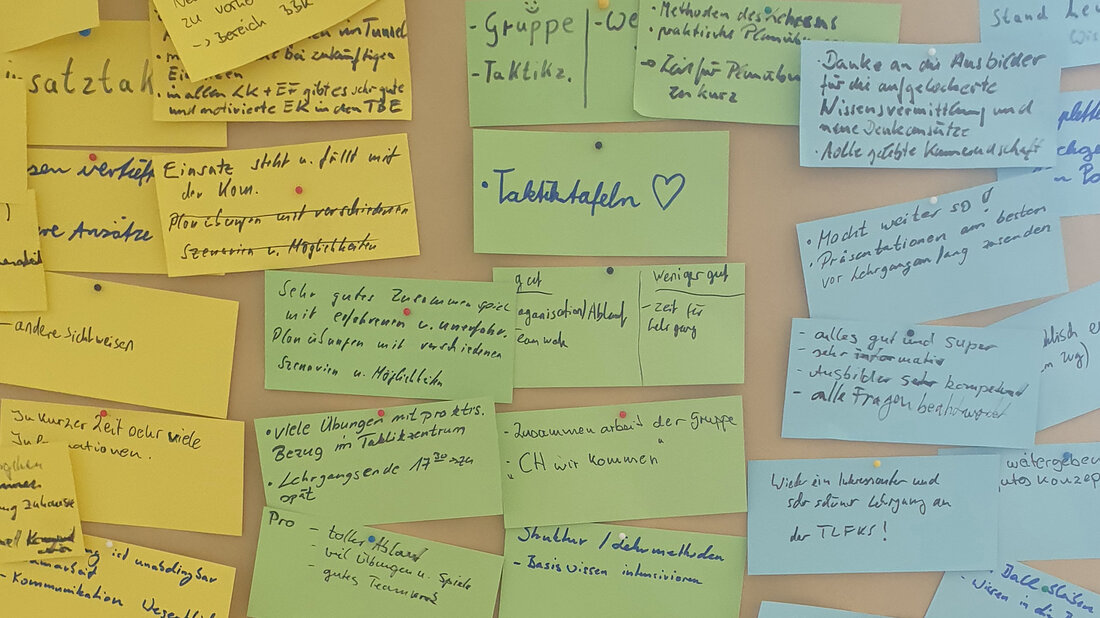 zu
→ Bereich BBK
satztak
im Tunnel
bei zukünftigen
in allen LK + EF gibt es sehr gute
und motivierte EK in den TBE
sen vertief
re Ansätze
Einsatz steht u. fällt mit
der Kom.
Planübungen mit verschiedenen
Szenarien u. Möglichkeiten
- andere Sichtweisen
In kurzer Zeit sehr viele
ationen.
ng zuhause
ng ist unabdingbar
amarbeit
- Kommunikation Wesentlich
- Gruppe
- Taktikz.
- We
• Methoden des
• praktische Planübun
→ Zeit für Planübun
zu kurz
• Taktiktafeln ♡
Sehr gutes Zusammenspiel
mit erfahrenen u. unerfahr.
Planübungen mit verschiedenen
Szenarien u. Möglichkeiten
gut
organisation/Ablauf
Teamwork
weniger gut
- Zeit für
Lehrgang
• viele Übungen mit praktis.
Bezug im Taktikzentrum
• Lehrgangsende 17³⁰ zu
spät
- Zusammenarbeit der Gruppe
- "CH wir kommen"
Pro
- toller Ablauf
- viel Übungen u. Spiele
- gutes Teamwork
Struktur / Lehrmethoden
- Basiswissen intensivieren
Stand
• Danke an die Ausbilder
für die aufgelockerte
Wissensvermittlung und
neue Denkansätze
• tolle gelebte Kameradschaft
• Macht weiter so!
• Präsentationen am besten
vor Lehrgangsanfang zusenden
- alles gut und super
- sehr informativ
- Ausbilder sehr kompetent
- alle Fragen beantwortet
Wieder ein Interessanter und
sehr schöner Lehrgang an
der TLFKS!
weitergeben
gutes Konzept
- Ball
- Wissen in die